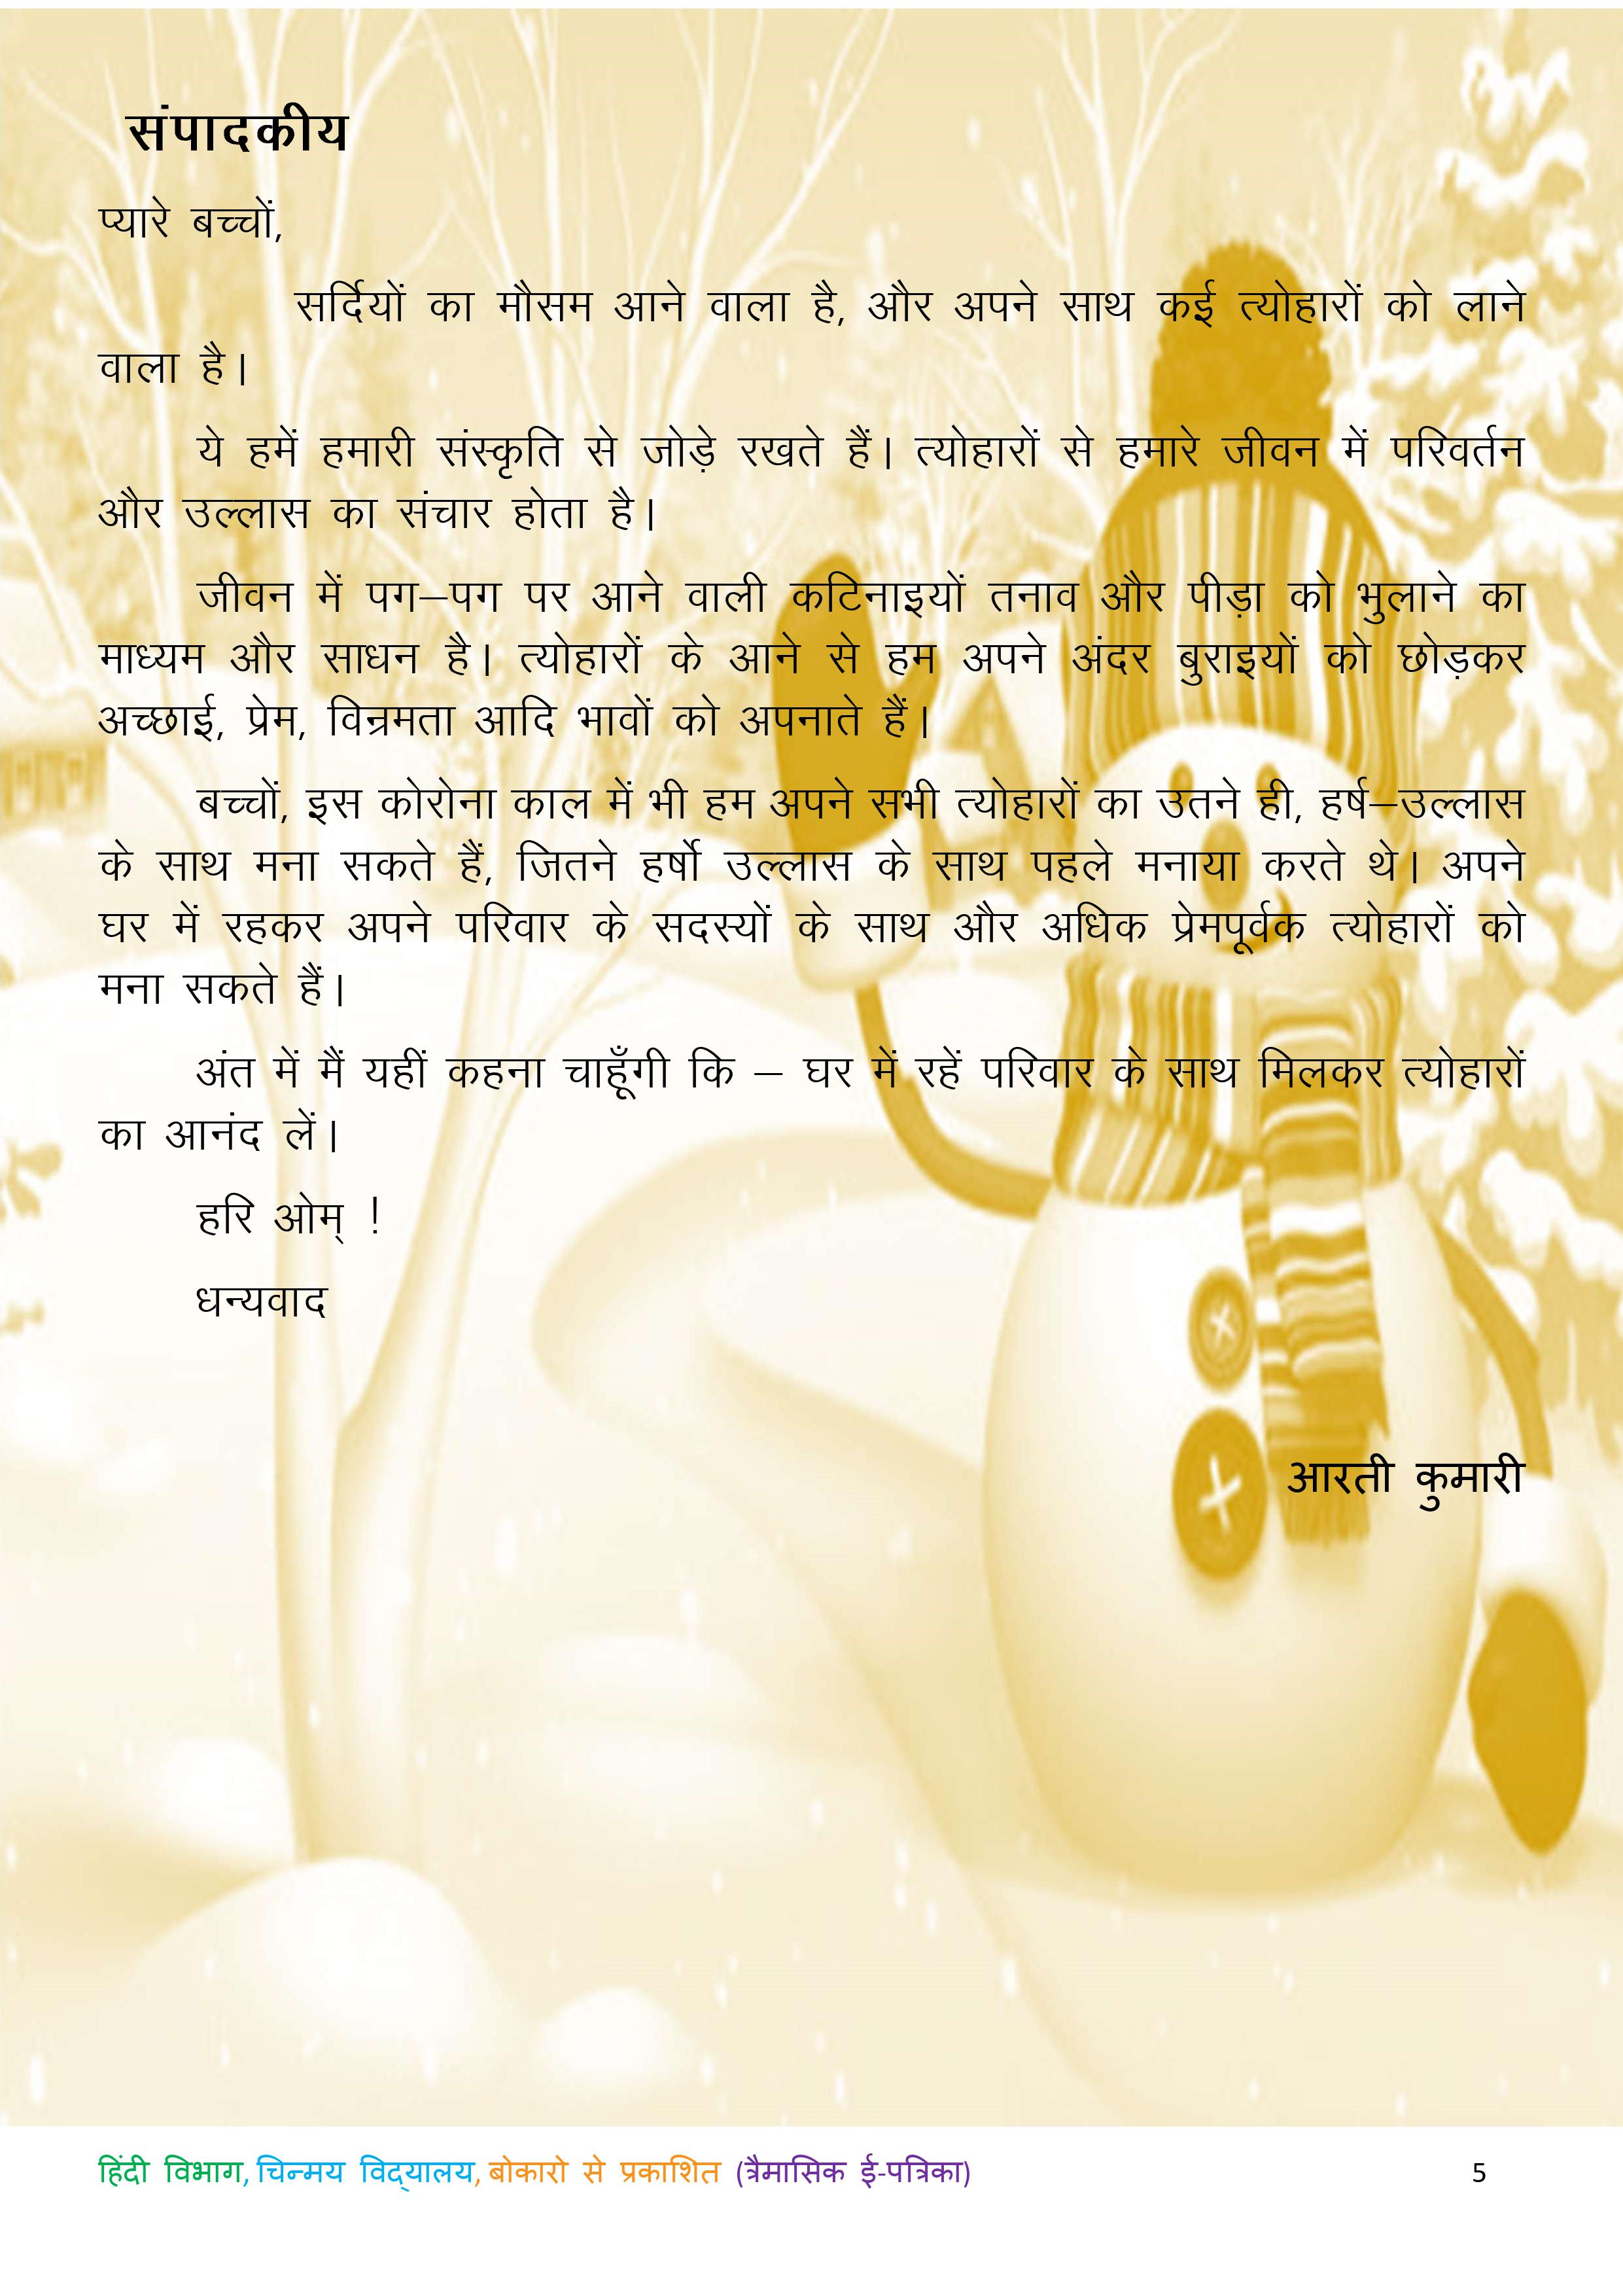 संपादकीय
प्यारे बच्चों,
सर्दियों का मौसम आने वाला है, और अपने साथ कई त्योहारों को लाने
वाला है।
ये हमें हमारी संस्कृति से जोड़े रखते हैं। त्योहारों से हमारे जीवन में परिवर्तन
और उल्लास का संचार होता है।
जीवन में पग–पग पर आने वाली कटिनाइयों तनाव और पीड़ा को भुलाने का
माध्यम और साधन है। त्योहारों के आने से हम अपने अंदर बुराइयों को छोड़कर
अच्छाई, प्रेम, विन्रमता आदि भावों को अपनाते हैं।
बच्चों, इस कोरोना काल में भी हम अपने सभी त्योहारों का उतने ही, हर्ष–उल्लास
के साथ मना सकते हैं, जितने हर्षो उल्लास के साथ पहले मनाया करते थे। अपने
घर में रहकर अपने परिवार के सदस्यों के साथ और अधिक प्रेमपूर्वक त्योहारों को
मना सकते हैं।
अंत में मैं यहीं कहना चाहूँगी कि – घर में रहें परिवार के साथ मिलकर त्योहारों
का आनंद लें।
हरि ओम् !
धन्यवाद
आरती कुमारी
हिंदी विभाग, चिन्मय विद्यालय, बोकारो से प्रकाशित (त्रैमासिक ई-पत्रिका) 5